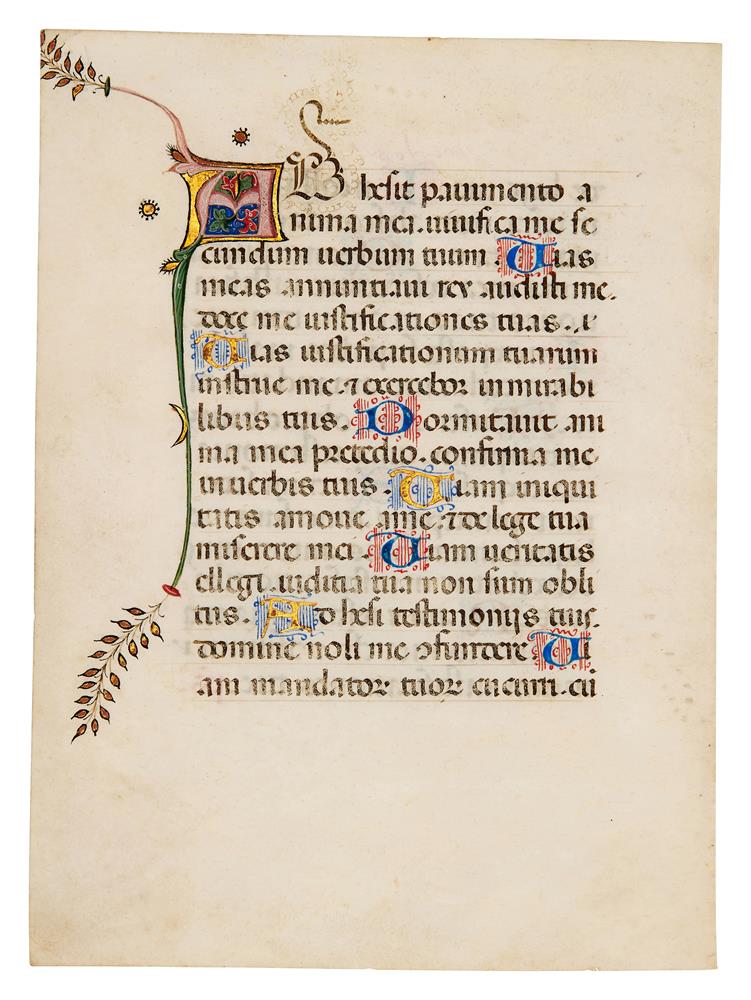 AD hesit pauimento a
nima mea. uiuifica me se
cundum uerbum tuum. Uias
meas annuntiaui ꞇ ex audisti me.
doce me iustificationes tuas. v
Uias iustificationum tuarum
instrue me. ⁊ exercebor in mirabi
libus tuis. Dormitauit ani
ma mea pretedio. confirma me
in uerbis tuis. Uiam iniqui
tatis amoue ame. ⁊ de lege tua
miserere mei. Uiam ueritatis
ellegi. iuditia tua non sum obli
tus. Adhesi testimonijs tuis.
domine noli me ꝯfundere Ui
am mandatoꝝ tuoꝝ cucurri. cū